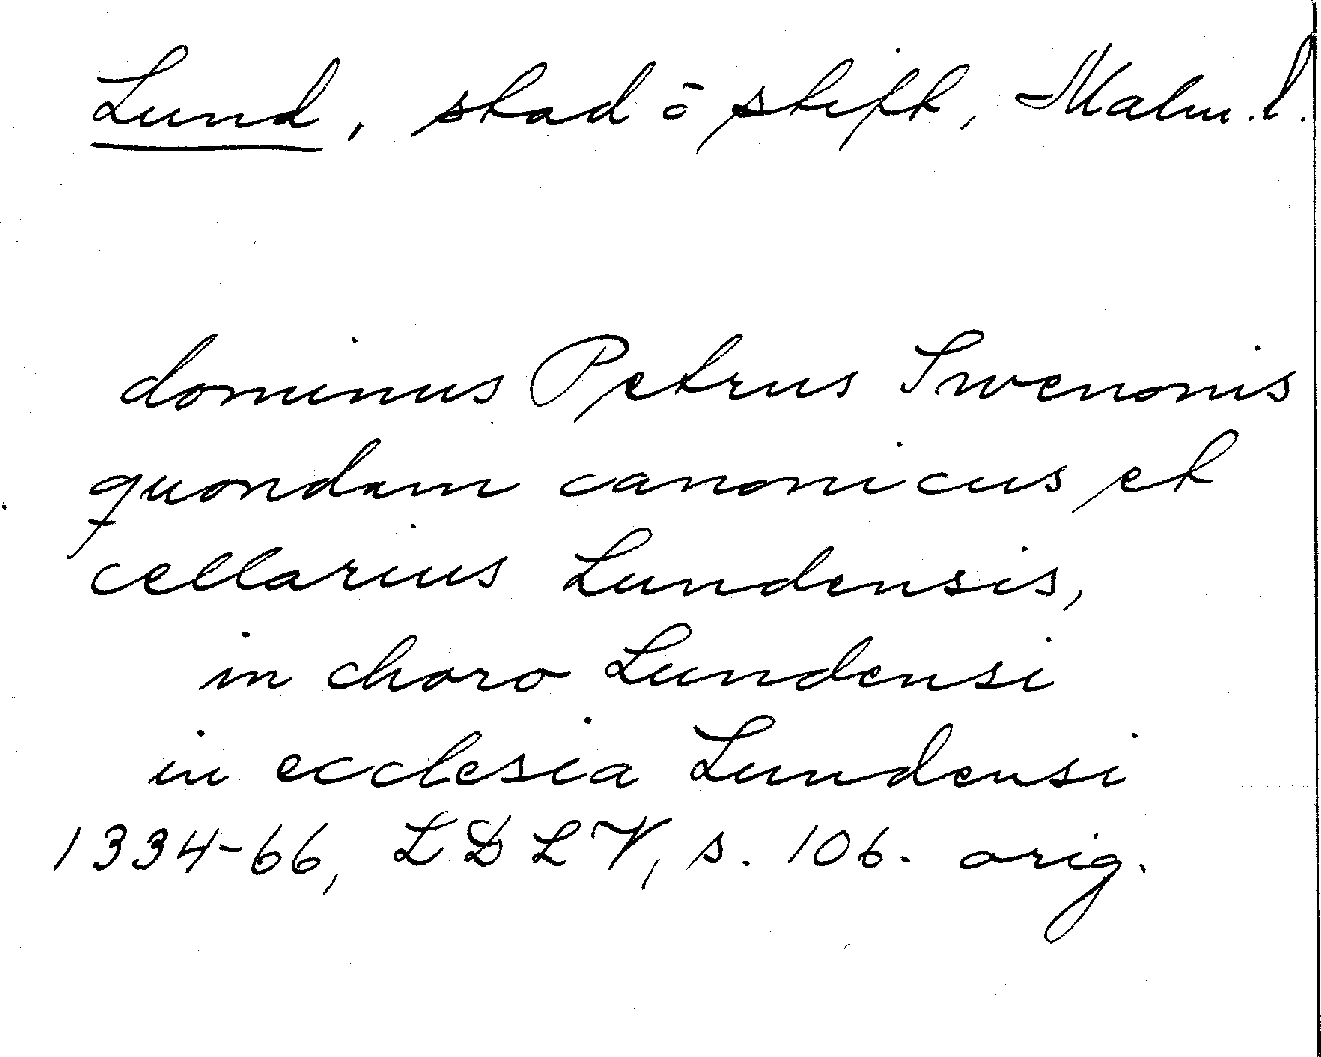 Lund, stad ō stift, Malm. l.
dominus Petrus Swenonis
quondam canonicus et
cellarius Lundensis,
in choro Lundensi
in ecclesia Lundensi
1334-66, LDLV, s. 106. orig.